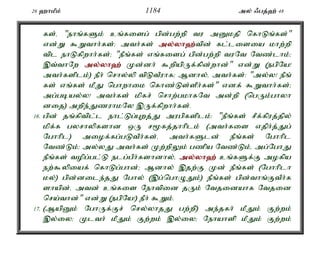 26 ஹாமீம் 1184 அல் ஃபத்ஹ் 48
கள், "நாங்களும் உங்களைப் பின்பற்றி வர அனுமதி கொடுங்கள்"
என்று கூறுவார்கள்; அவர்கள் அல்லாஹ்வின் கட்டளையை மாற்றி
விட நாடுகிறார்கள்; "நீங்கள் எங்களைப் பின்பற்றி வரவே வேண்டாம்;
இவ்வாறே அல்லாஹ் முன்னர் கூறியிருக்கின்றான்" என்று (நபியே!
அவர்களிடம்) நீர் சொல்லி விடுவீராக; ஆனால், அவர்கள்; "அல்ல; நீங்
கள் எங்கள் மீது பொறாமை கொண்டுள்ளீர்கள்" எனக் கூறுவார்கள்;
அப்படியல்ல; அவர்கள் மிகச் சொற்பமாகவே அன்றி (பெரும்பாலா
னதை) அறிந்துணராமலே இருக்கிறார்கள்.
16. பின் தங்கிவிட்ட நாட்டுப்புறத்து அரபிகளிடம்; "நீங்கள் சீக்கிரத்தில்
மிக்க பலசாலிகளான ஒரு சமூகத்தாரிடம் (அவர்களை எதிர்த்துப்
போரிட) அழைக்கப்படுவீர்கள், அவர்களுடன் நீங்கள் போரிட
வேண்டும்; அல்லது அவர்கள் முற்றிலும் பணிய வேண்டும். அப்போது
நீங்கள் வழிப்பட்டு நடப்பீர்களானால், அல்லாஹ் உங்களுக்கு அழகிய
நற்கூலியைக் கொடுப்பான்; ஆனால் இதற்கு முன் நீங்கள் (போரிடா
மல்) பின்னடைந்தது போல் (இப்பொழுதும்) நீங்கள் பின்வாங்குவீர்க
ளாயின், அவன் உங்களை நோவினை தரும் வேதனையாக வேதனை
செய்வான்" என்று (நபியே!) நீர் கூறும்.
17. (ஆயினும் போருக்குச் செல்லாதது பற்றி) அந்தகர் மீதும் குற்றம்
இல்லை; முடவர் மீதும் குற்றம் இல்லை; நோயாளி மீதும் குற்றம்